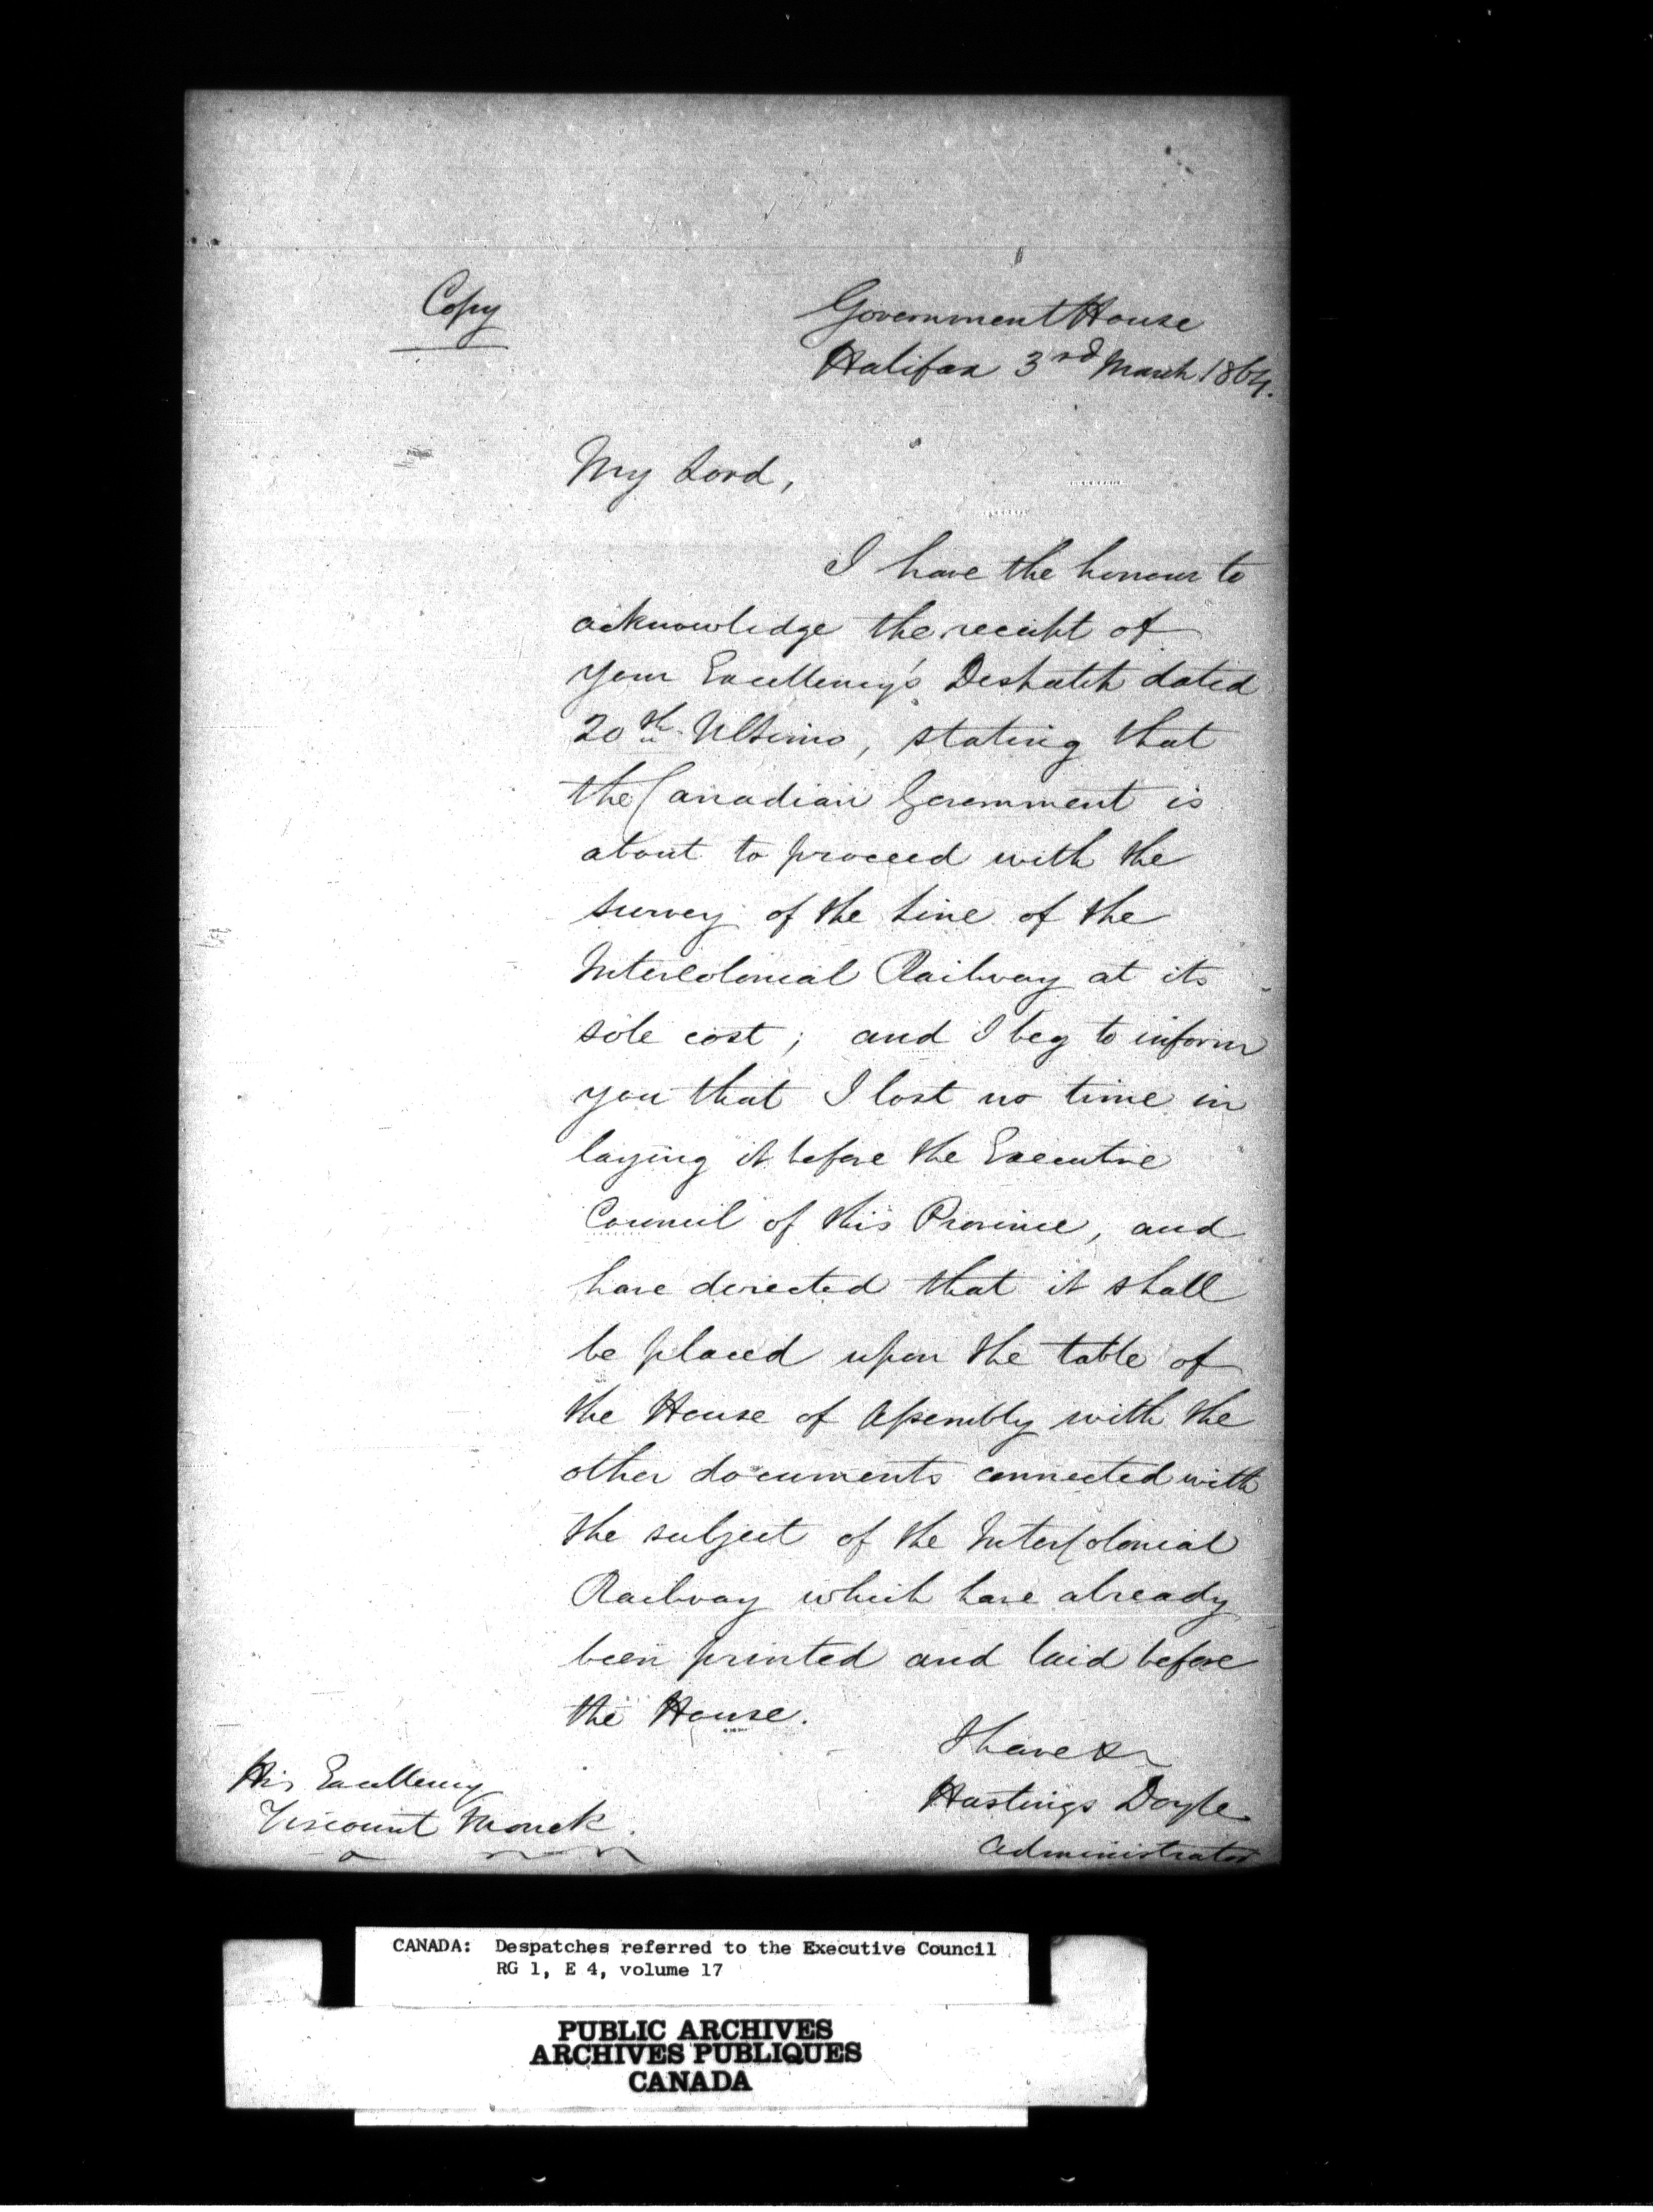 Copy
Government House
Halifax 3rd March 1864.
My Lord,
I have the honour to
acknowledge the receipt of
your Excellency's Despatch dated
20th Ultimo, stating that
the Canadian Government is
about to proceed with the
survey of the line of the
Intercolonial Railway at its
sole cost; and I beg to inform
you that I lost no time in
laying it before the Executive
Council of this Province, and
have directed that it shall
be placed upon the table of
the House of Assembly with the
other documents connected with
the subject of the InterColonial
Railway which have already
been printed and laid before
the House.
I have &c
Hastings Doyle
Administrator
His Excellency
Viscount Monck.
CANADA: Despatches referred to the Executive Council
RG 1, E 4, volume 17
PUBLIC ARCHIVES
ARCHIVES PUBLIQUES
CANADA